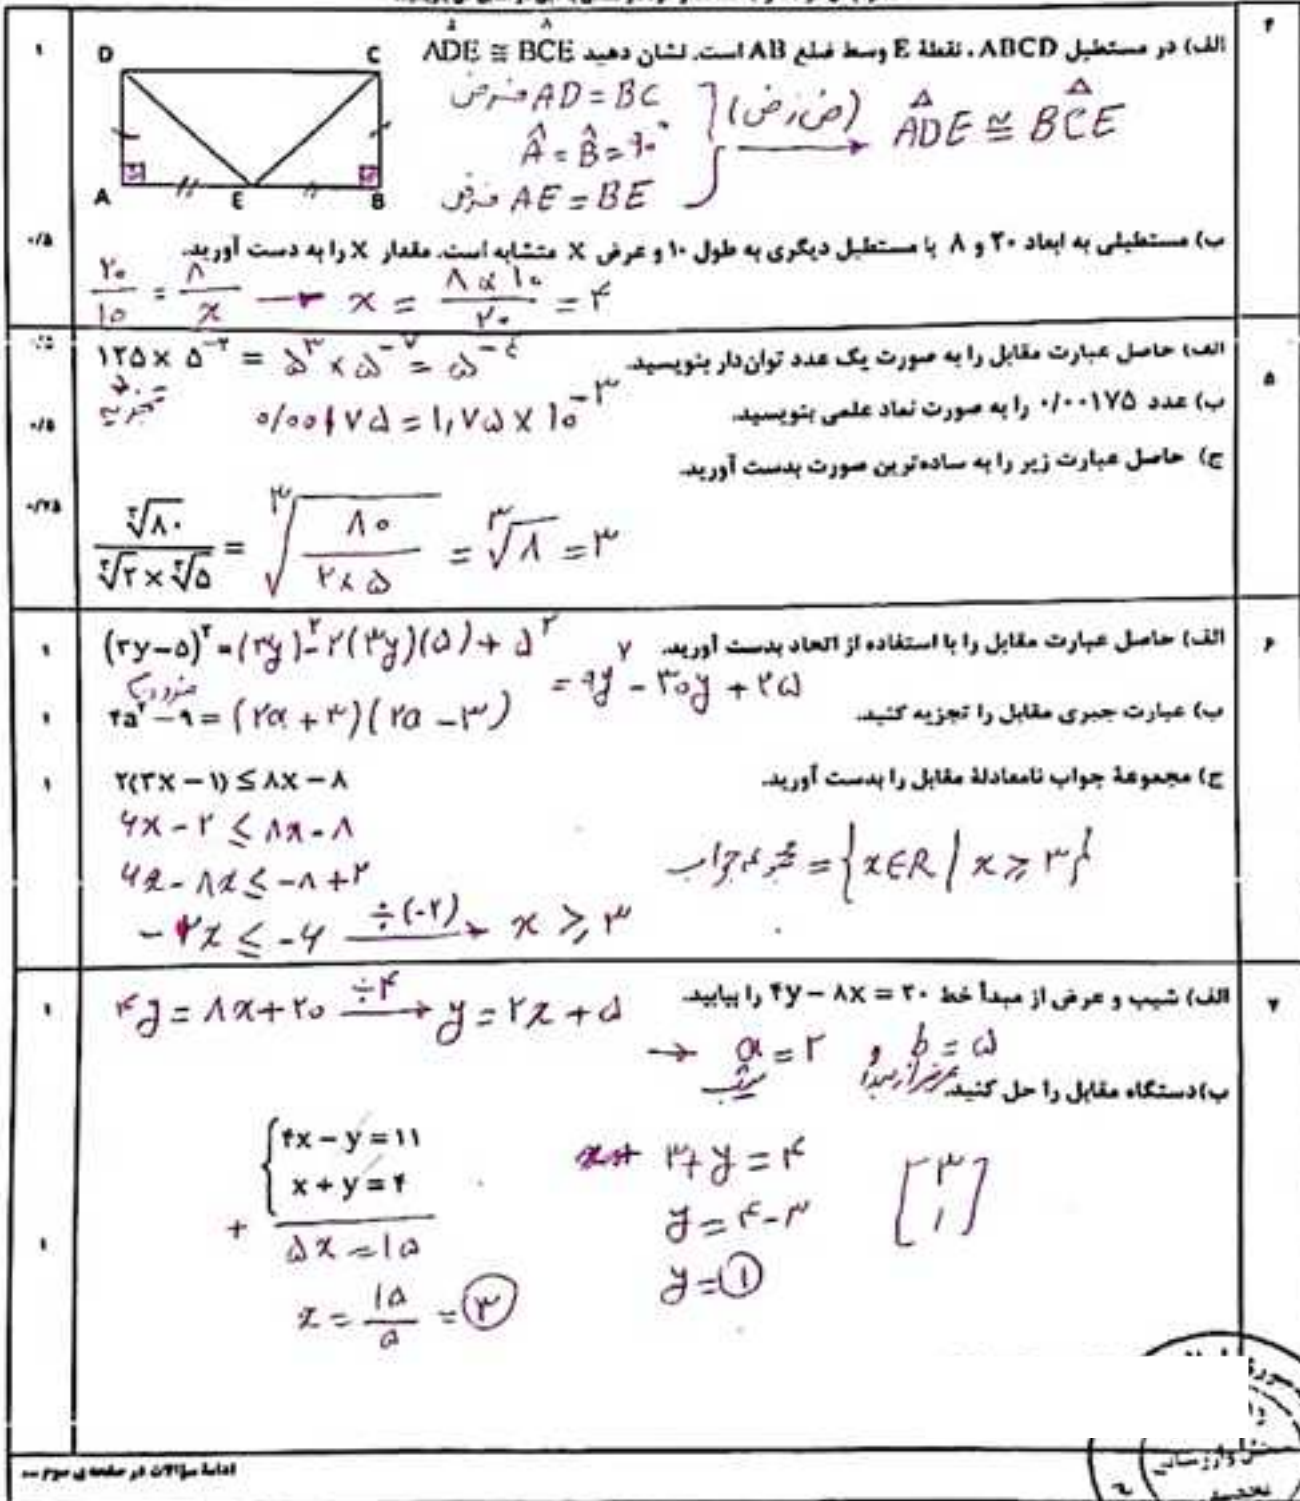 ۴
الف) در مستطیل ABCD، نقطهٔ E وسط ضلع AB است. نشان دهید ADE ≅ BCE
۱
D C
A E B
فرض AD = BC
Â = B̂ = ۹۰°
فرض AE = BE
(ض ز ض) → ADE ≅ BCE
ب) مستطیلی به ابعاد ۲۰ و ۸ با مستطیل دیگری به طول ۱۰ و عرض X متشابه است. مقدار X را به دست آورید.
۰/۵
۲۰/۱۰ = ۸/x → x = ۸×۱۰/۲۰ = ۴
۵
الف) حاصل عبارت مقابل را به صورت یک عدد توان‌دار بنویسید.
تجزیه
ب) عدد ۰/۰۰۱۷۵ را به صورت نماد علمی بنویسید.
۰/۵
۰/۰۰۱۷۵ = ۱,۷۵ × ۱۰⁻³
ج) حاصل عبارت زیر را به ساده‌ترین صورت بدست آورید.
۰/۷۵
∛۸۰ / ∛۲×∛۵ = ∛(۸۰ / ۲×۵) = ∛۸ = ۳
۶
الف) حاصل عبارت مقابل را با استفاده از اتحاد بدست آورید.
۱
(۳y−۵)² = (۳y)² − ۲(۳y)(۵) + ۵²
= ۹y² − ۳۰y + ۲۵
ب) عبارت جبری مقابل را تجزیه کنید.
۱
مزدوج
۴a² − ۹ = (۲a + ۳)(۲a − ۳)
ج) مجموعهٔ جواب نامعادلهٔ مقابل را بدست آورید.
۱
۲(۳x − ۱) ≤ ۸x − ۸
۶x − ۲ ≤ ۸x − ۸
۶x − ۸x ≤ −۸ + ۲
−۲x ≤ −۶ ÷(−۲) → x ≥ ۳
مجموعه جواب = {x∈R | x ≥ ۳}
۷
الف) شیب و عرض از مبدأ خط ۴y − ۸x = ۲۰ را بیابید.
۱
۴y = ۸x + ۲۰ ÷۴ → y = ۲x + ۵
→ a = ۲ و b = ۵
شیب عرض از مبدا
ب)دستگاه مقابل را حل کنید.
۱
۴x − y = ۱۱
x + y = ۴
+
۵x = ۱۵
x = ۱۵/۵ = ۳
۳ + y = ۴
y = ۴ − ۳
y = ۱
[۳ ۱]
ادامهٔ سؤالات در صفحه‌ی سوم ...